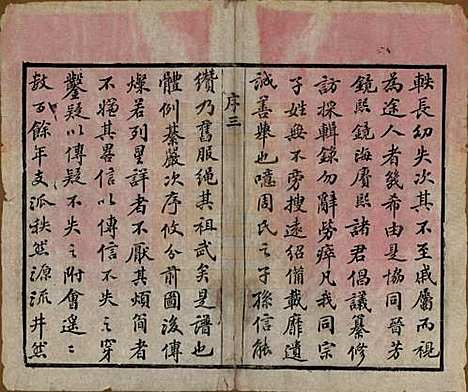 軼長幼失次其不至戚屬而視
為途人者幾希由是協同晉芳
鏡熙鏡海賡熙諸君倡議纂修
訪採輯錄勿辭勞瘁凡我同宗
子姓無不旁搜遠紹備載靡遺
誠善舉也噫周氏之子孫信能
序三
纘乃舊服繩其祖武矣是譜也
體例綦嚴次序攸分前圖後傳
燦若列星詳者不厭其煩簡者
不嫌其畧信以傳信不失之穿
鑿疑以傳疑不失之附會遥遥
数百餘年支派秩然源流井然